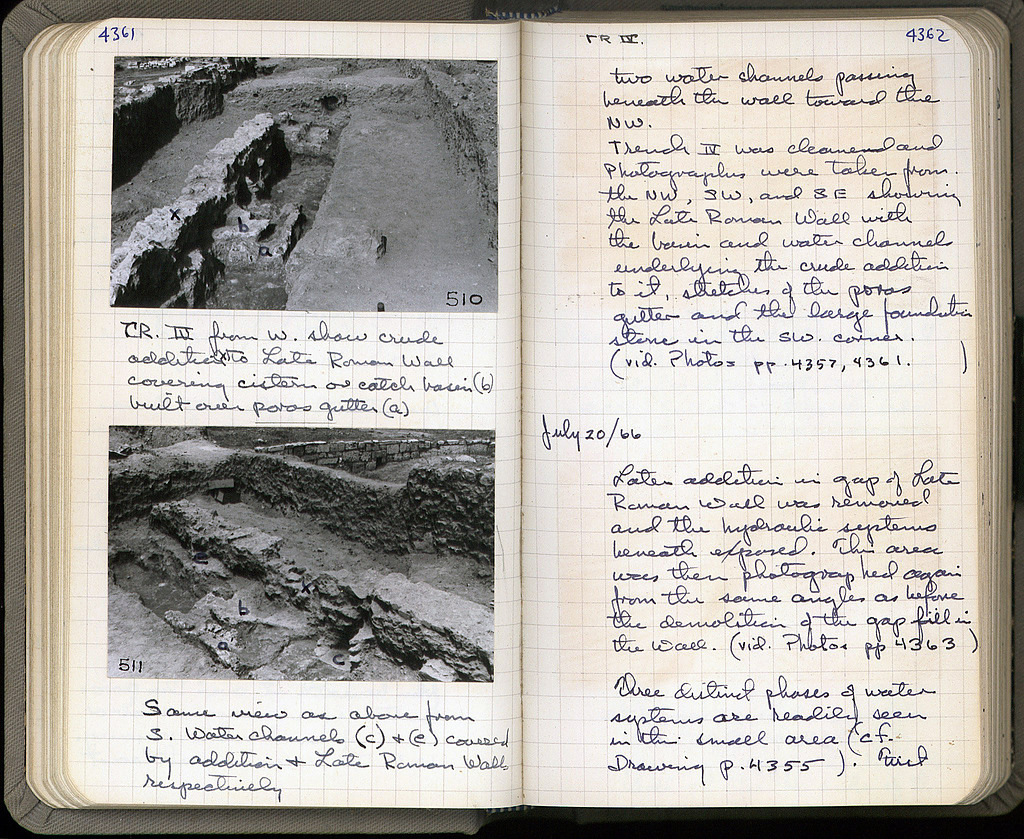 4361
x
b
a
510
TR. III from W. show crude
addition x to Late Roman Wall
covering cistern or catch basin (b)
built over poros gutter (a)
e
x
b
a
c
511
Same view as above from
S. Water channels (c) + (e) covered
by addition + Late Roman Wall
respectively
TR IV.
4362
two water channels passing
beneath the wall toward the
NW.
Trench IV was cleaned and
Photographs were taken from
the NW, SW, and SE showing
the Late Roman Wall with
the basin and water channels
underlying the crude addition
to it, stretches of the poros
gutter and the large foundation
stone in the SW. corner.
(vid. Photos pp. 4357, 4361. )
July 20/66
Later addition in gap of Late
Roman Wall was removed
and the hydraulic systems
beneath exposed. This area
was then photographed again
from the same angles as before
the demolition of the gap fill in
the Wall. (vid. Photos pp 4363 )
Three distinct phases of water
systems are readily seen
in this small area (cf.
Drawing p. 4355 ). First